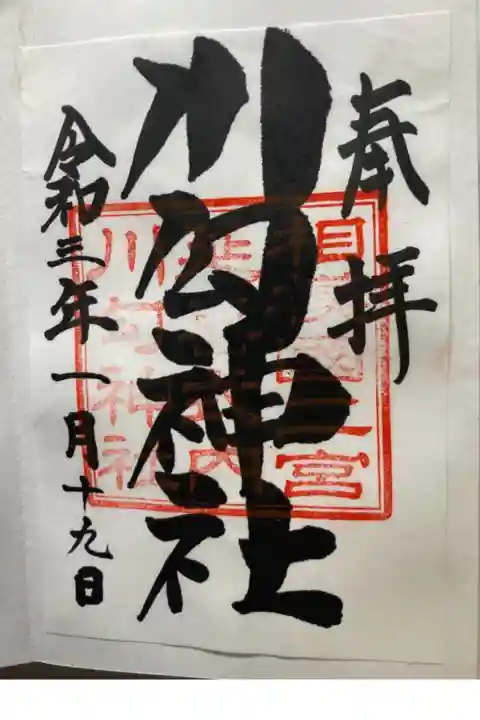 奉拝
川勾神社
令和三年一月十九日
相模國二宮
川勾神社